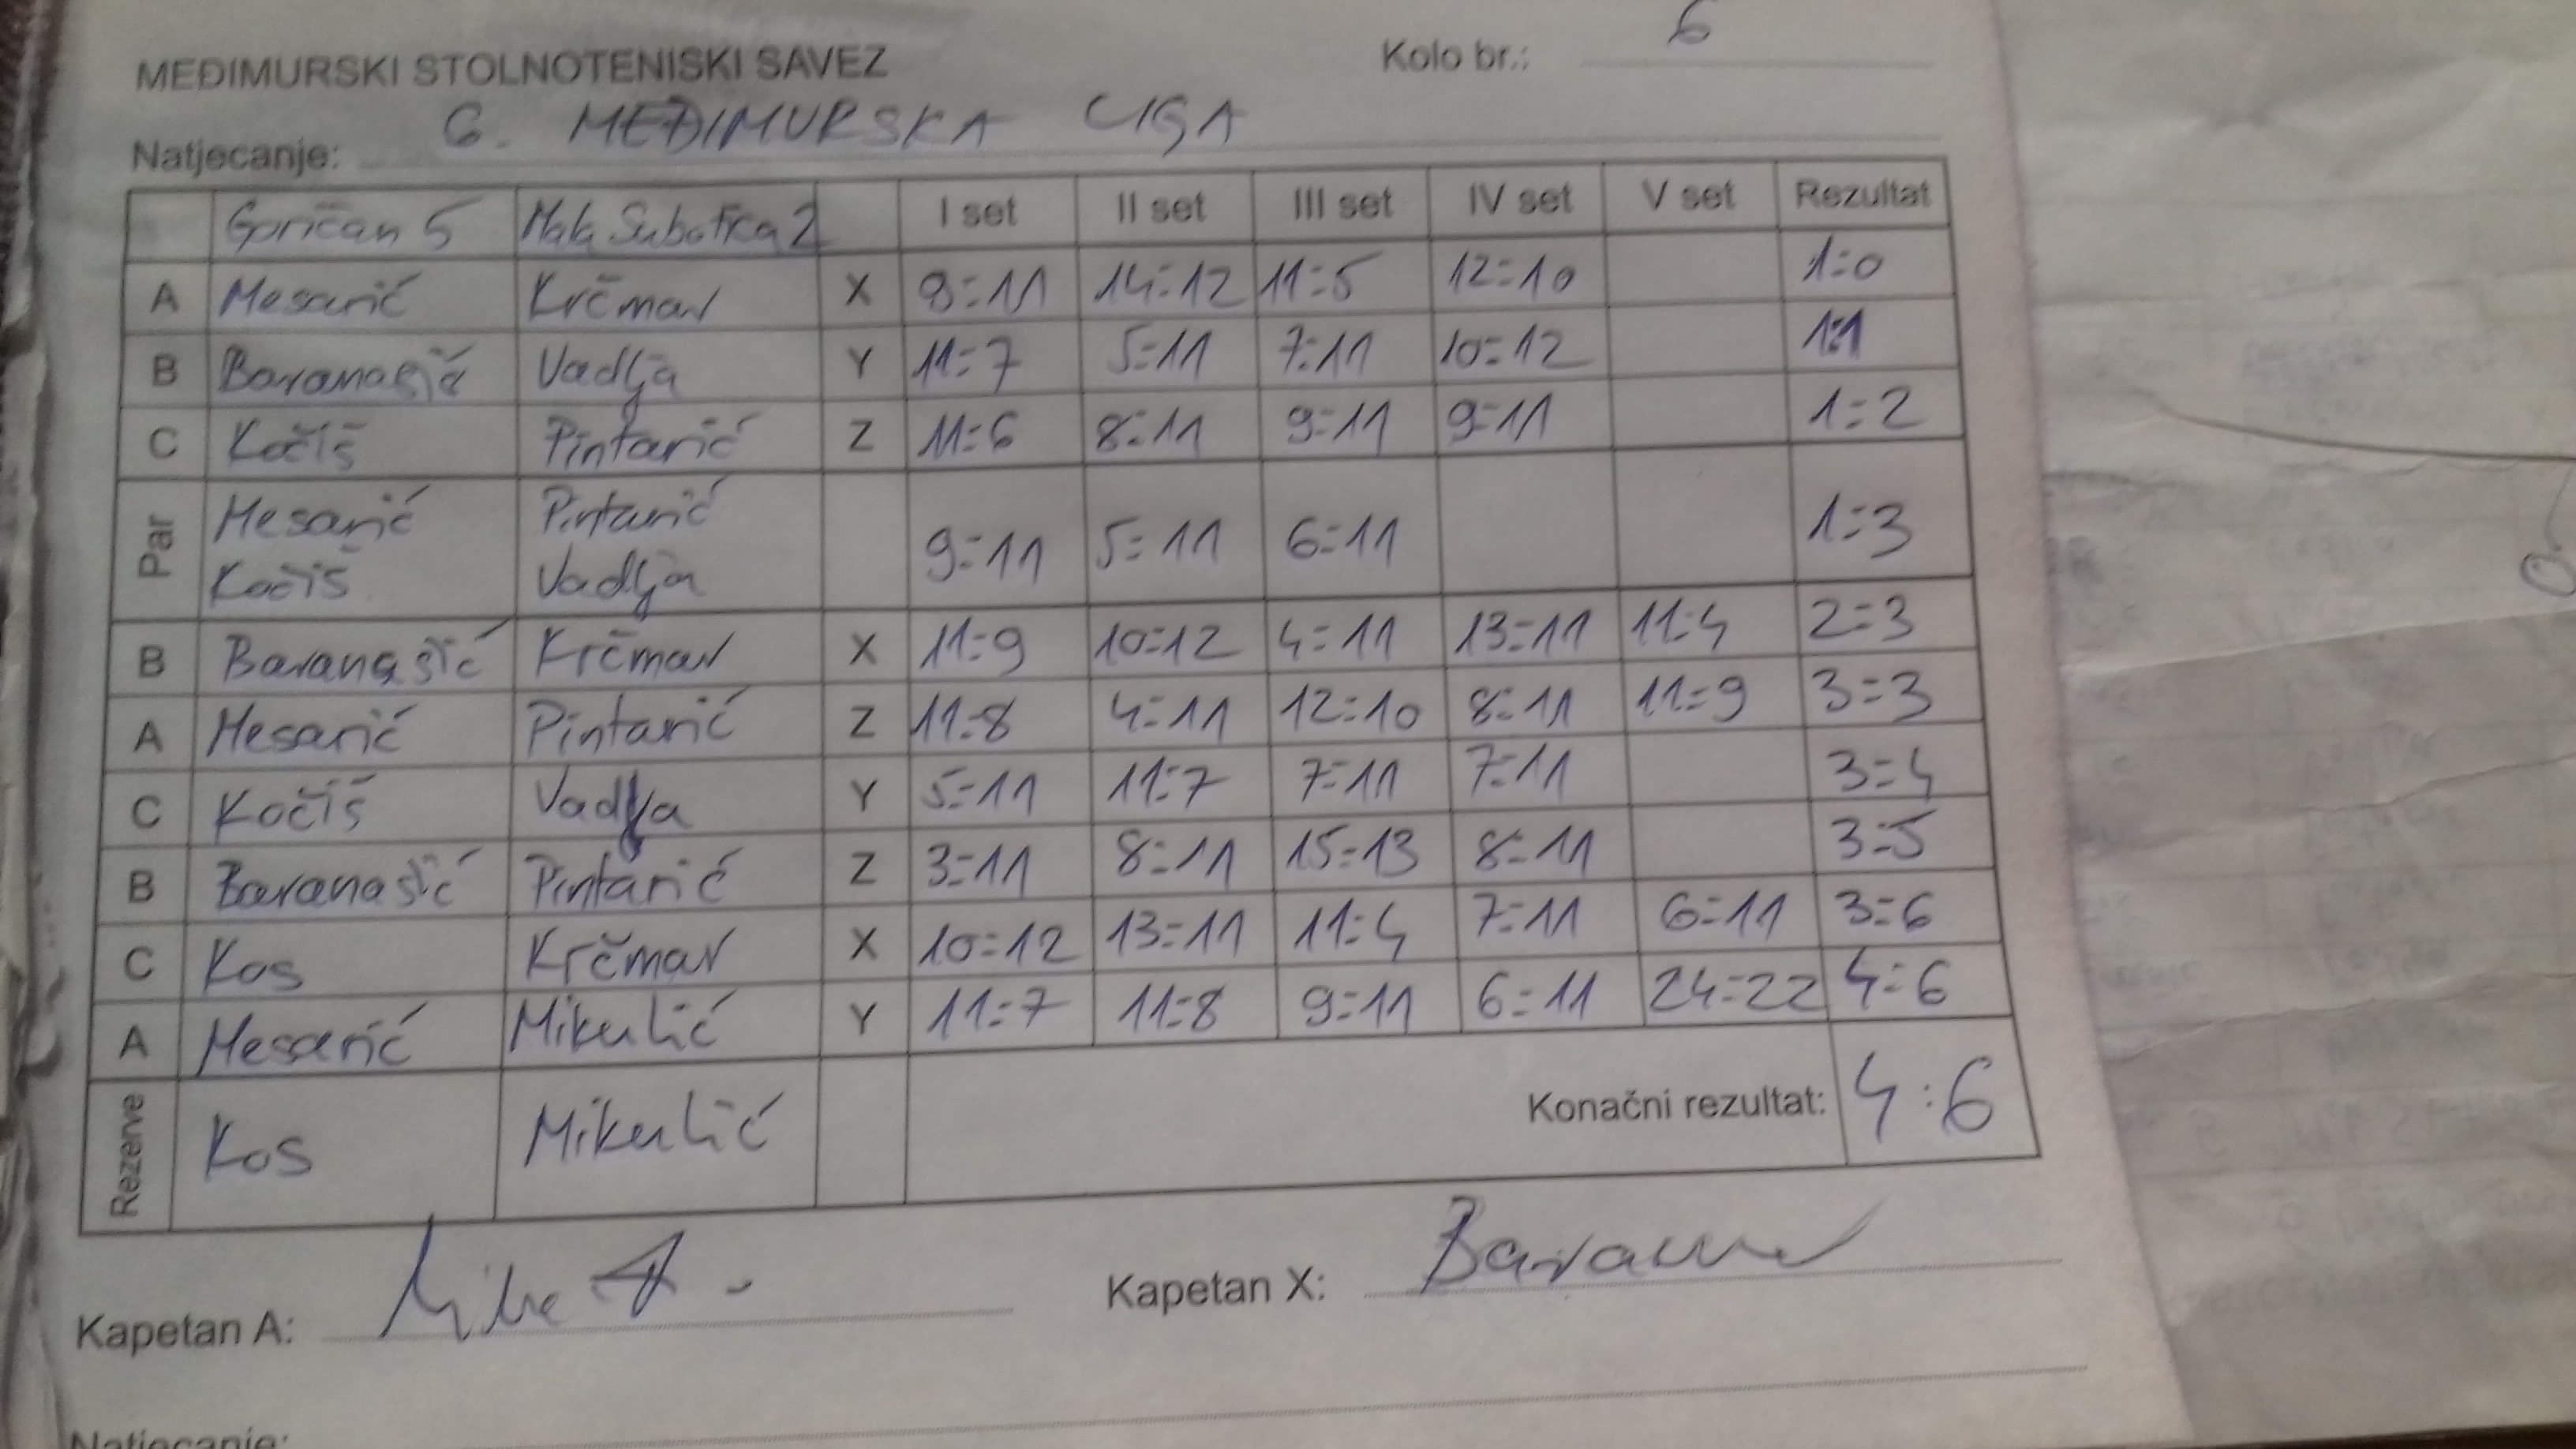 MEĐIMURSKI STOLNOTENISKI SAVEZ Kolo br.: 6
Natjecanje: 6. MEĐIMURSKA LIGA
Goričan 5 Mala Subotica 2 I set II set III set IV set V set Rezultat
A Mesarić Krčmar X 9:11 14:12 11:5 12:10 1:0
B Baranašić Vadlja Y 11:7 5:11 7:11 10:12 1:1
C Kočiš Pintarić Z 11:6 8:11 9:11 9:11 1:2
Par Mesarić Kočiš Pintarić Vadlja 9:11 5:11 6:11 1:3
B Baranašić Krčmar X 11:9 10:12 4:11 13:11 11:4 2:3
A Mesarić Pintarić Z 11:8 4:11 12:10 8:11 11:9 3:3
C Kočiš Vadlja Y 5:11 11:7 7:11 7:11 3:4
B Baranašić Pintarić Z 3:11 8:11 15:13 8:11 3:5
C Kos Krčmar X 10:12 13:11 11:4 7:11 6:11 3:6
A Mesarić Mikulić Y 11:7 11:8 9:11 6:11 24:22 4:6
Rezerve Kos Mikulić Konačni rezultat: 4:6
Kapetan A: Kapetan X:
Natjecanje: